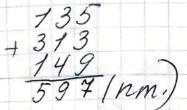 135
+ 313
149
597 (пт.)